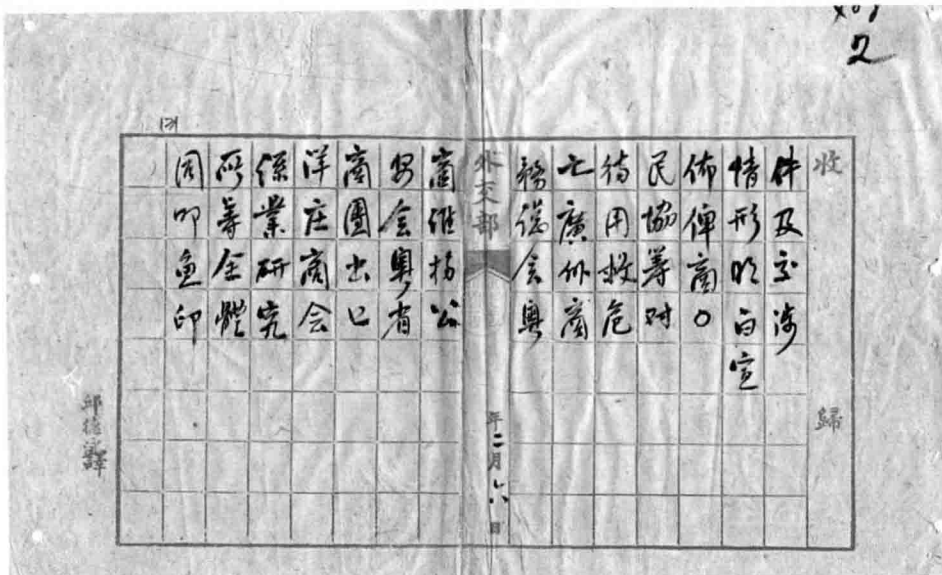 2
收 歸
件及交涉
情形明白宣
佈俾商○
民協籌对
待用救危
亡廣州商
務總会粵
外交部
年二月六日
商維持公
安会粵省
商團出口
洋庄商会
絲業研究
所等全體
同叩魚印
邱德譯